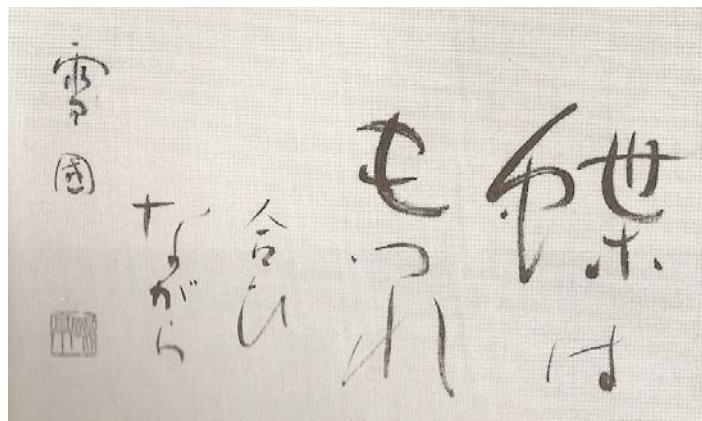 蝶は
もつれ
合ひ
ながら
雪國